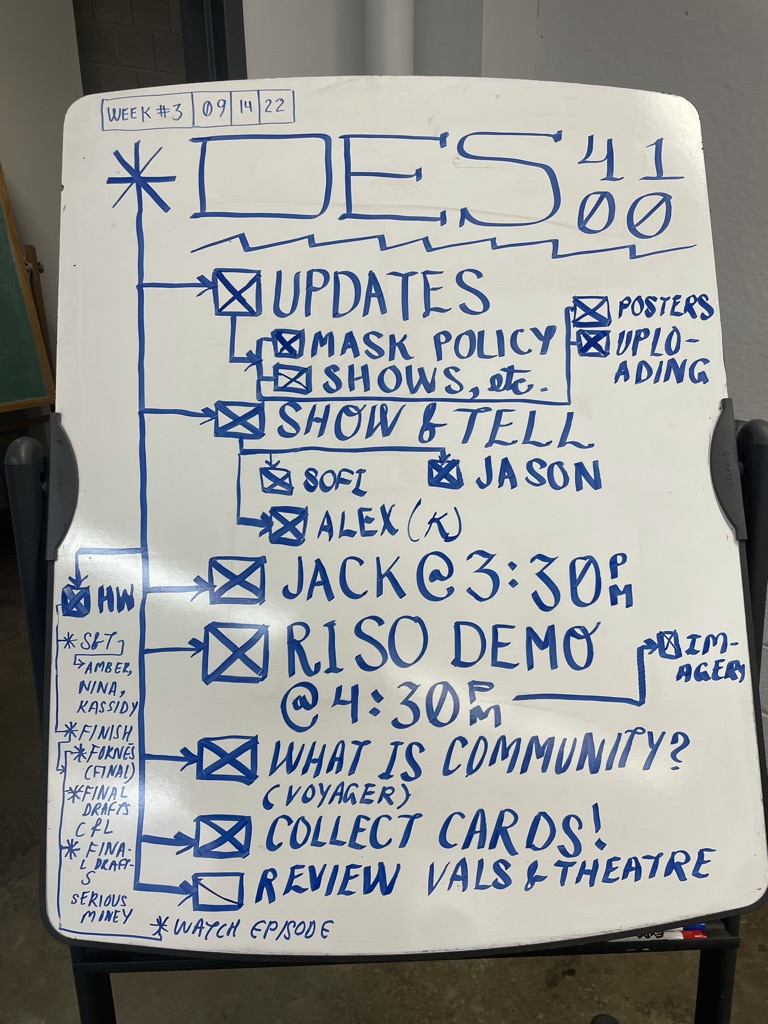 WEEK #3 09 14 22
DES 41
00
UPDATES
MASK POLICY
SHOWS, etc.
POSTERS
UPLO-
ADING
SHOW & TELL
SOFI
JASON
ALEX (K)
JACK @ 3:30 PM
RISO DEMO
@ 4:30 PM
IM-
AGERY
WHAT IS COMMUNITY?
(VOYAGER)
COLLECT CARDS!
REVIEW VALS & THEATRE
HW
S&T
AMBER,
NINA,
KASSIDY
FINISH
FORNES
(FINAL)
FINAL
DRAFTS
C&L
FINA-
L DRAFT-
S
SERIOUS
MONEY
WATCH EPISODE